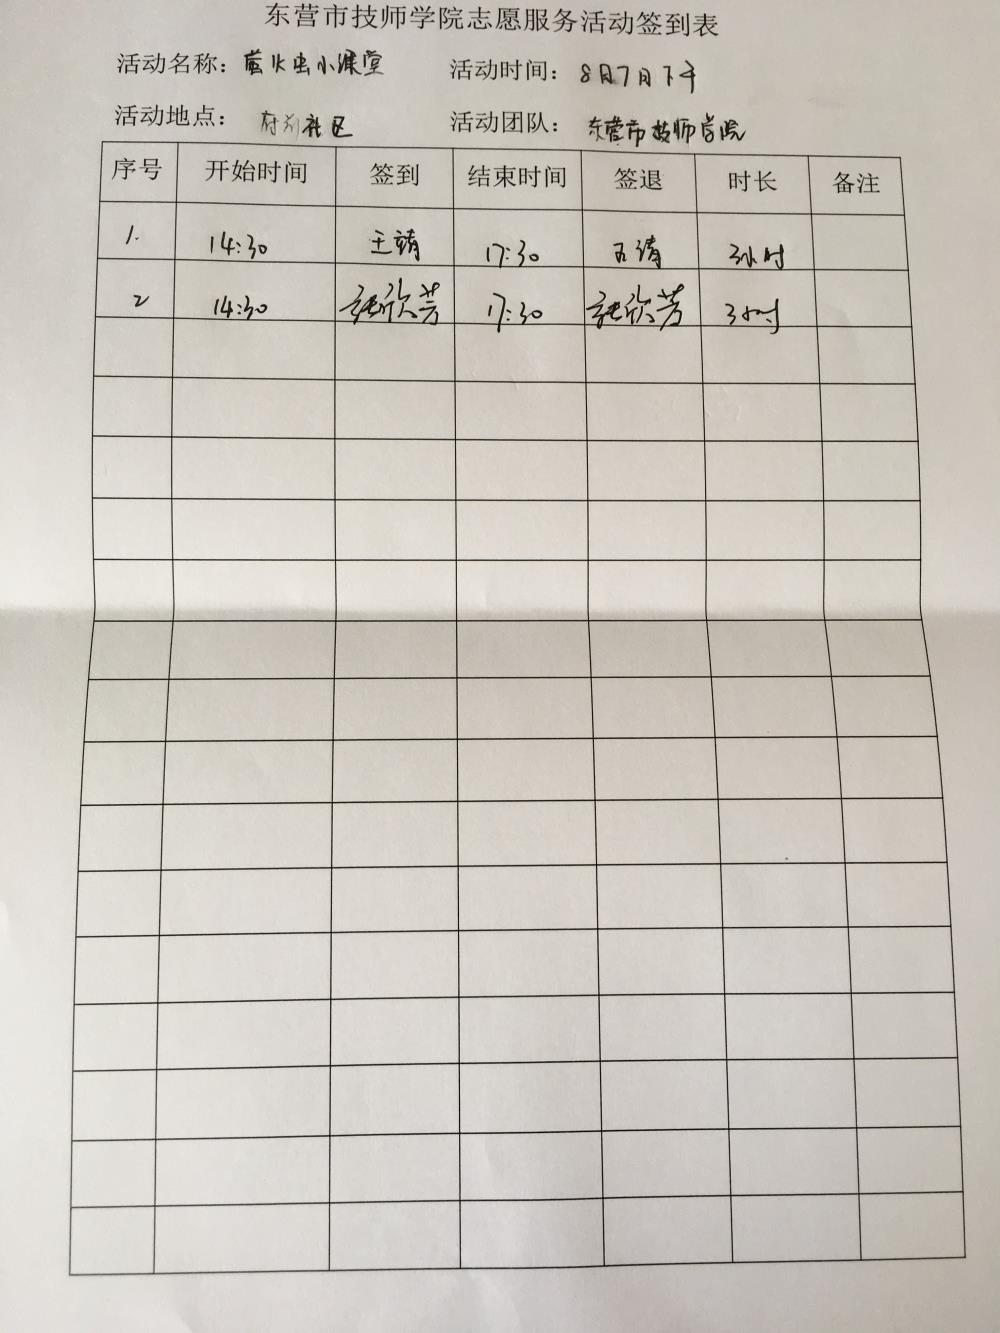 东营市技师学院志愿服务活动签到表
活动名称：萤火虫小课堂 活动时间：8月7日下午
活动地点：府前社区 活动团队：东营市技师学院
序号 开始时间 签到 结束时间 签退 时长 备注
1. 14:30 王靖 17:30 王靖 3小时
2 14:30 张欣芳 17:30 张欣芳 3小时